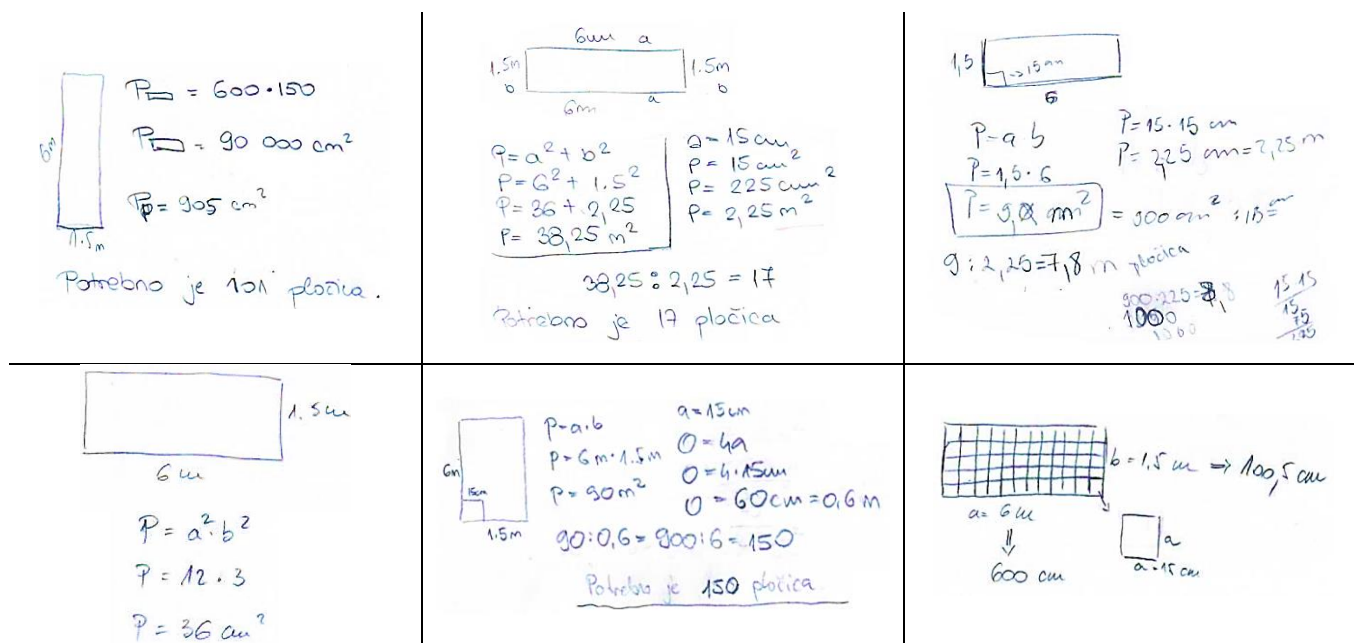 6m
P▭ = 600·150
P▭ = 90 000 cm²
Pp = 905 cm²
1.5m
Potrebno je 101 pločica.
6m a
1.5m
b
1.5m
b
6m a
P = a² + b²
P = 6² + 1.5²
P = 36 + 2,25
P = 38,25 m²
a = 15cm
P = 15cm²
P = 225 cm²
P = 2,25 m²
38,25 : 2,25 = 17
Potrebno je 17 pločica
1,5
15 cm
6
P = a b
P = 1,5 · 6
P = 9,0 m²
= 900 cm²
P = 15 · 15 cm
P = 2,25 cm = 2,25 m
9 : 2,25 = 7,8 m pločica
15 15
15
75
1.5 cm
6 cm
P = a² · b²
P = 12 · 3
P = 36 cm²
6m
15cm
1.5m
P = a·b
P = 6m · 1.5m
P = 90m²
a = 15cm
O = 4a
O = 4·15cm
O = 60cm = 0,6 m
90 : 0,6 = 900 : 6 = 150
Potrebno je 150 pločica
b = 1,5 cm ⇒ 100,5 cm
a = 6 cm
⇓
600 cm
a
a = 15 cm